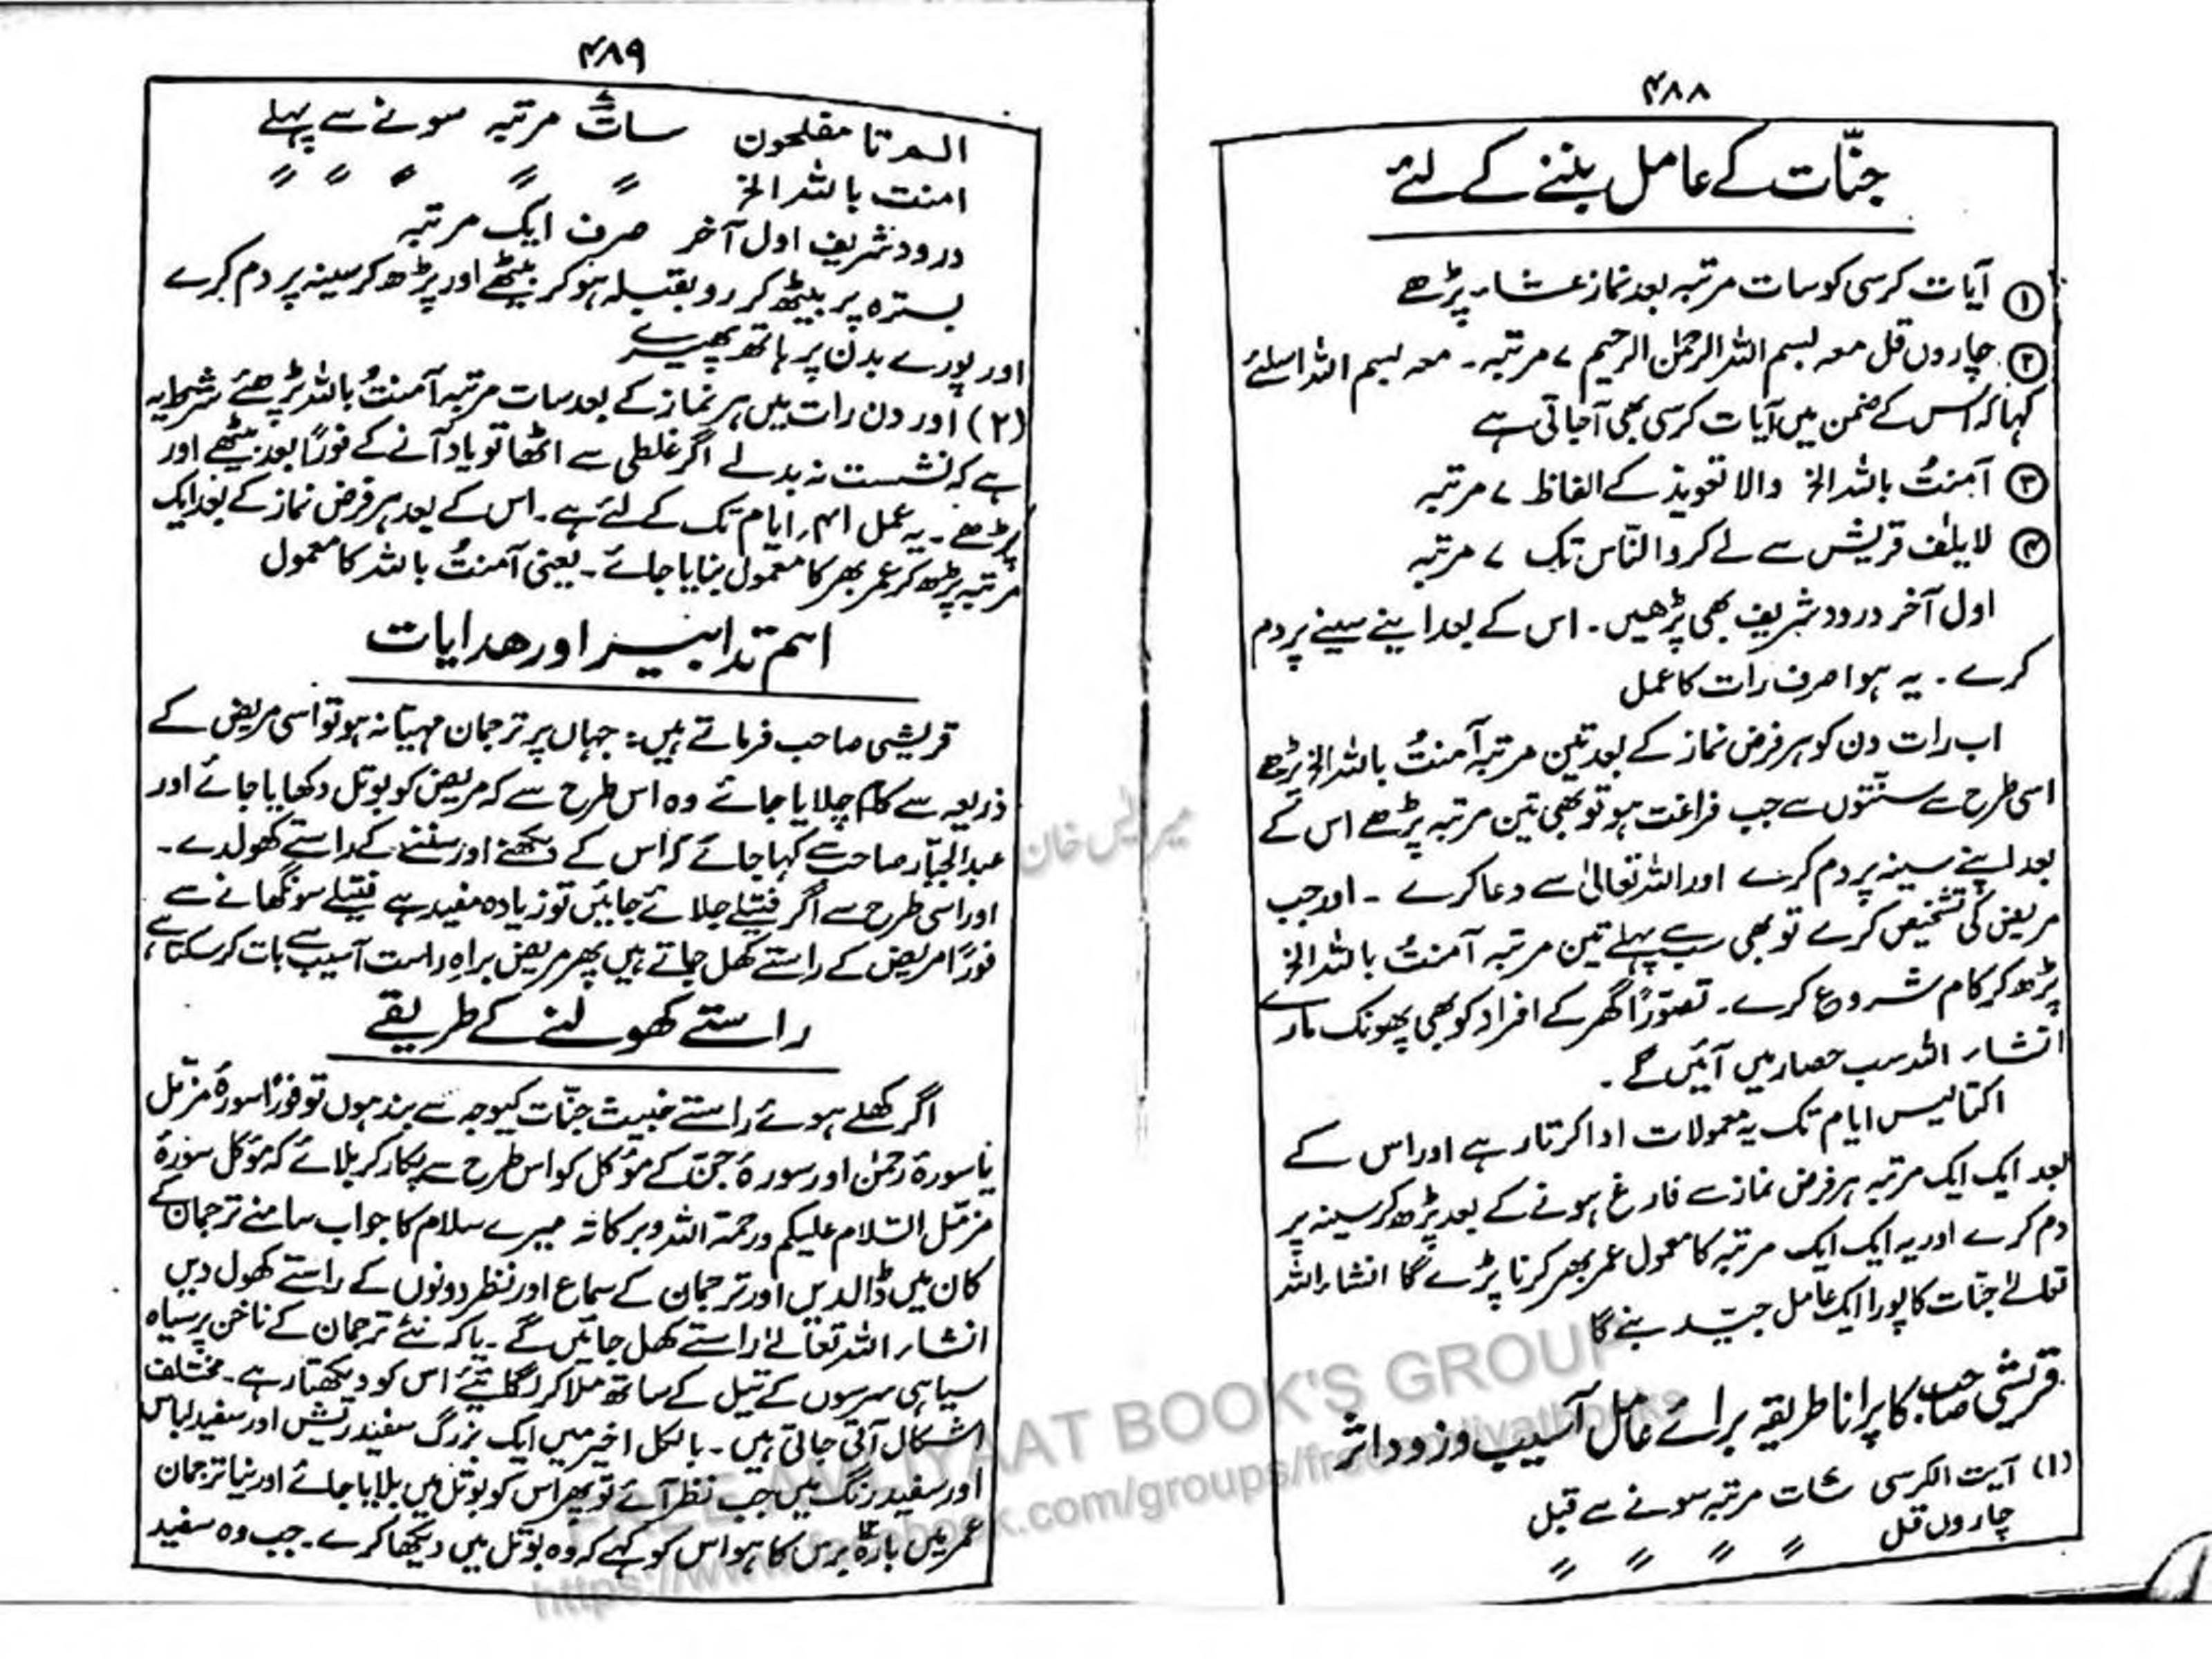 ۴۸۸
جنّات کے عامل بننے کے لئے
① آیات کرسی کو سات مرتبہ بعد نماز عشاء پڑھے
② چاروں قل معہ بسم اللہ الرحمٰن الرحیم ۷ مرتبہ ۔ معہ بسم اللہ اسلئے
کہا کہ اس کے ضمن میں آیات کرسی بھی آجاتی ہے
③ آمنتُ باللہ الخ والا تعویذ کے الفاظ ۷ مرتبہ
④ لایلٰف قریش سے لے کر والنّاس تک ۷ مرتبہ
اول آخر درود شریف بھی پڑھیں ۔ اس کے بعد اپنے سینے پر دم
کرے ۔ یہ ہوا صرف رات کا عمل
اب رات دن کو ہر فرض نماز کے بعد تین مرتبہ آمنتُ باللہ الخ پڑھے
اسی طرح سے سنّتوں سے جب فراغت ہو تو بھی تین مرتبہ پڑھے اس کے
بعد اپنے سینہ پر دم کرے اور اللہ تعالیٰ سے دعا کرے ۔ اور جب
مریض کی تشخیص کرے تو بھی سب سے پہلے تین مرتبہ آمنتُ باللہ الخ
پڑھ کر کام شروع کرے ۔ تصوّرًا گھر کے افراد کو بھی پھونک مارے
انشاء اللہ سب حصار میں آئیں گے ۔
اکتالیس ایام تک یہ معمولات ادا کرتا رہے اور اس کے
بعد ایک ایک مرتبہ ہر فرض نماز سے فارغ ہونے کے بعد پڑھ کر سینہ پر
دم کرے اور یہ ایک ایک مرتبہ کا معمول عمر بھر کرنا پڑے گا انشاء اللہ
تعالےٰ جنّات کا پورا ایک عامل جیّد بنے گا
قریشی صاحب کا پرانا طریقہ برائے عامل آسیب و زود اثر
(۱) آیت الکرسی سات مرتبہ سونے سے قبل
چاروں قل 〃 〃 〃 〃
۴۸۹
الم تا مفلحون سات مرتبہ سونے سے پہلے
امنت باللہ الخ 〃 〃 〃 〃 〃
درود شریف اول آخر صرف ایک مرتبہ
بسترہ پر بیٹھ کر رو بقبلہ ہو کر بیٹھے اور پڑھ کر سینہ پر دم کرے
اور پورے بدن پر ہاتھ پھیرے
(۲) اور دن رات میں ہر نماز کے بعد سات مرتبہ آمنتُ باللہ پڑھئے شرط یہ
ہے کہ نشست نہ بدلے اگر غلطی سے اٹھا تو یاد آنے کے فورًا بعد بیٹھے اور
پڑھے ۔ یہ عمل ۴۱ ایام تک کے لئے ہے ۔ اس کے بعد ہر فرض نماز کے بعد ایک
مرتبہ پڑھ کر عمر بھر کا معمول بنایا جائے ۔ یعنی آمنتُ باللہ کا معمول
اسم تدابیر اور ھدایات
قریشی صاحب فرماتے ہیں : جہاں پر ترجمان مہیّا نہ ہو تو اسی مریض کے
ذریعہ سے کام چلایا جائے وہ اس طرح سے کہ مریض کو بوتل دکھایا جائے اور
عبدالجبّار صاحب سے کہا جائے کہ اس کے دیکھنے اور سننے کے راستے کھولدے ۔
اور اسی طرح سے اگر فتیلے جلائے جائیں تو زیادہ مفید ہے فتیلے سونگھانے سے
فورًا مریض کے راستے کھل جاتے ہیں پھر مریض براہِ راست آسیب سے بات کر سکتا ہے
راستے کھولنے کے طریقے
اگر کھلے ہوئے راستے خبیث جنّات کیوجہ سے بند ہوں تو فورًا سورۂ مزمّل
یا سورۂ رحمٰن اور سورۂ جنّ کے موٴکل کو اس طرح سے پکار کر بلائے کہ موٴکل سورۂ
مزمّل السّلام علیکم ورحمۃ اللہ وبرکاتہ میرے سلام کا جواب سامنے ترجمان کے
کان میں ڈالدیں اور ترجمان کے سماع اور نظر دونوں کے راستے کھول دیں
انشاء اللہ تعالےٰ راستے کھل جائیں گے ۔ یا کہ نئے ترجمان کے ناخن پر سیاہ
سیاہی سرسوں کے تیل کے ساتھ ملا کر لگائیے اس کو دیکھتا رہے ۔ مختلف
اشکال آتی جاتی ہیں ۔ بالکل اخیر میں ایک بزرگ سفید ریش اور سفید لباس
اور سفید رنگ میں جب نظر آئے تو پھر اس کو بوتل میں بلایا جائے اور نیا ترجمان
عمر میں بارہ برس کا ہو اس کو کہے کہ وہ بوتل میں دیکھا کرے ۔ جب وہ سفید
FREE AMLIYAAT BOOK'S GROUP
https://www.facebook.com/groups/freeamliyatbooks